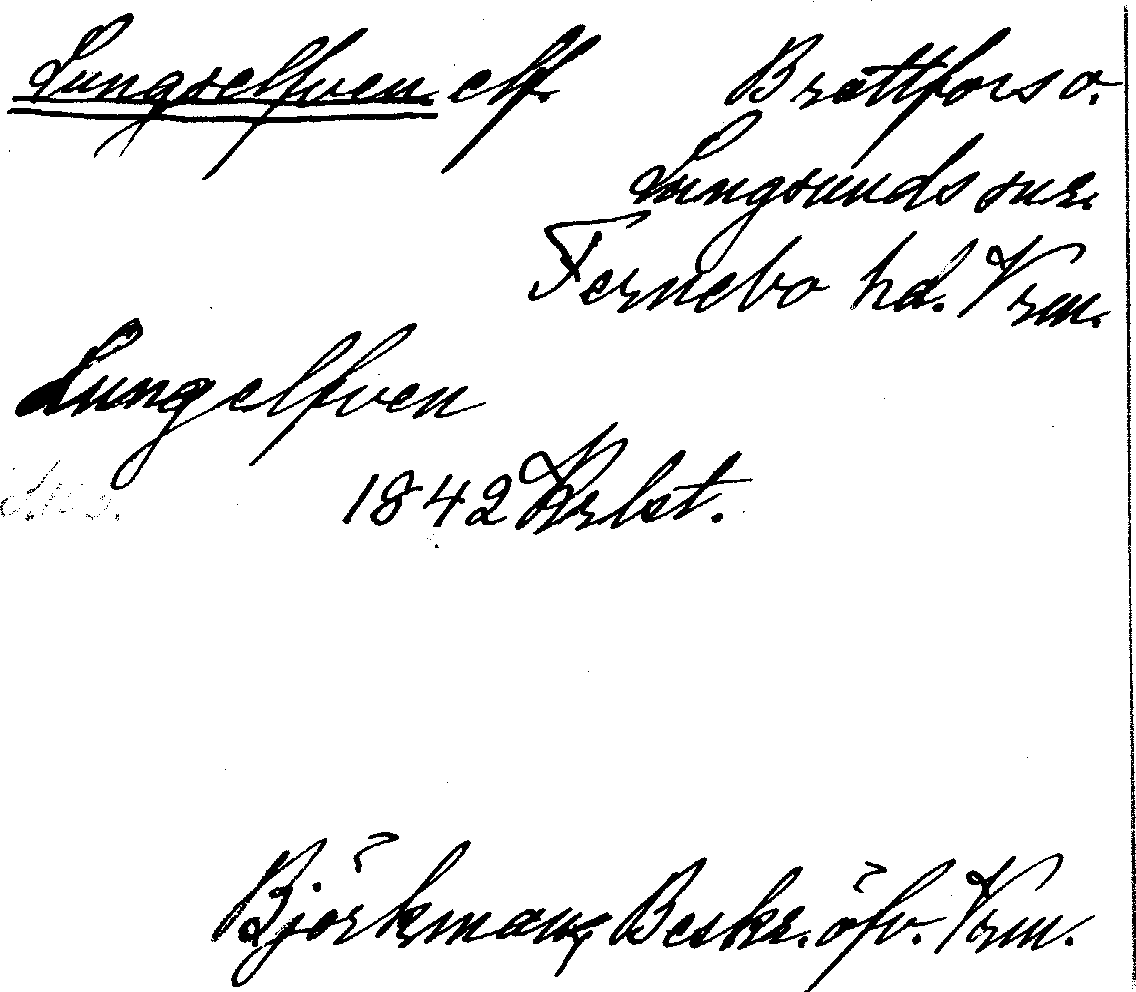 Lungselfven elf. Brattfors o.
Lungsunds snr.
Fernebo hd. Vrm.
Lungelfven
1842 Krlst.
Björkman, Beskr. öfv. Vrm.